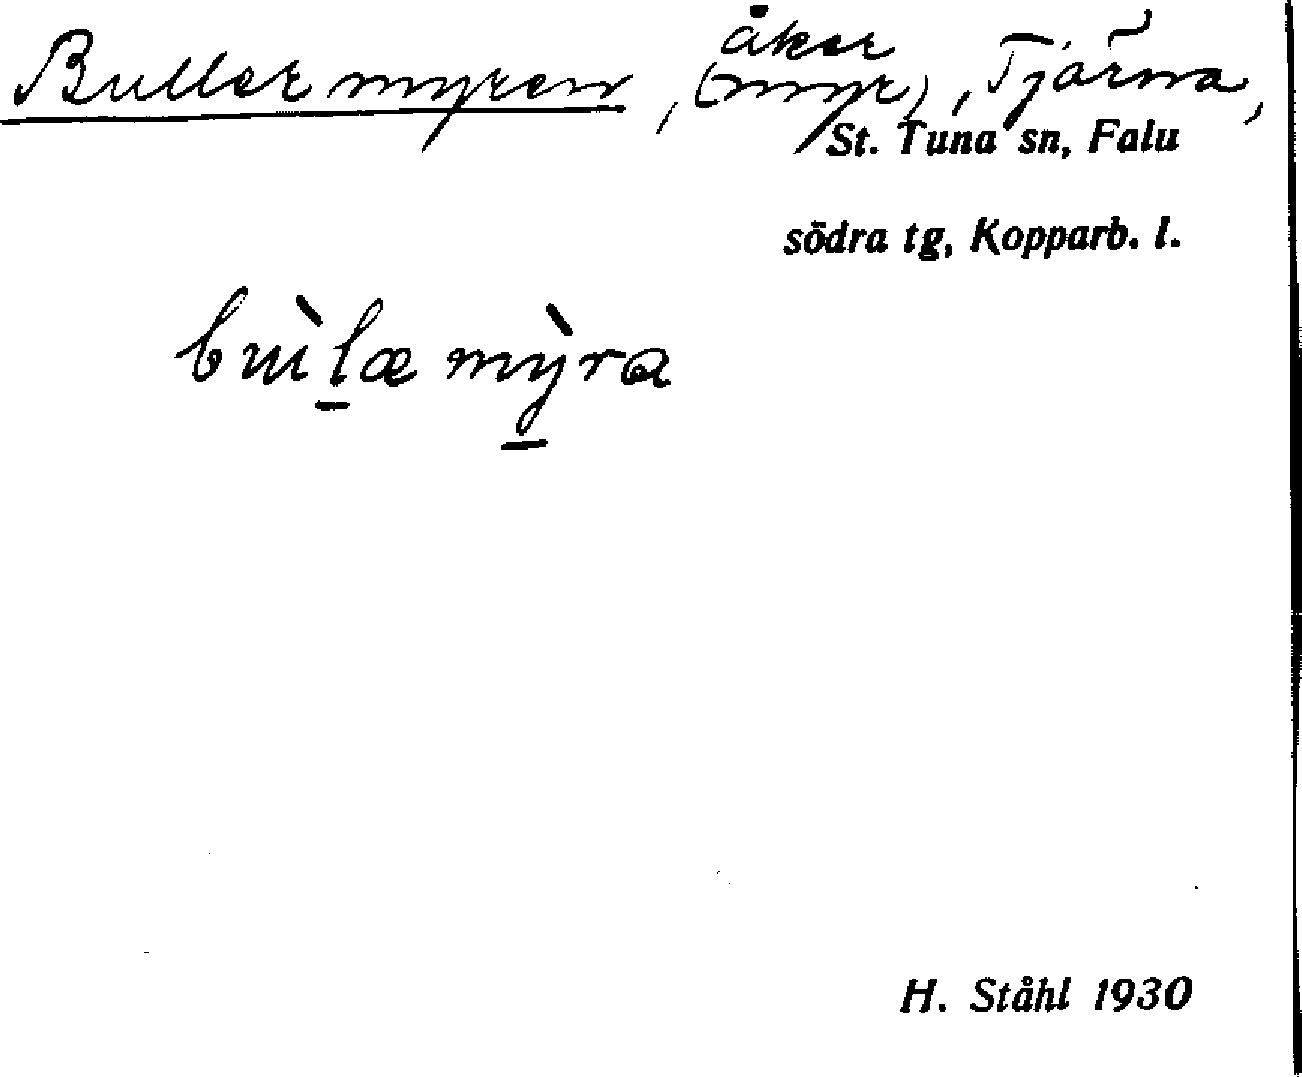 Bullermyren, åker (myr), Tjärna,
St. Tuna sn, Falu
södra tg, Kopparb. l.
bùlæ mỳra
H. Ståhl 1930